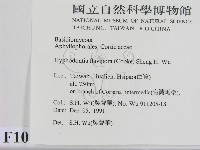 國立自然科學博物館
NATIONAL MUSEUM OF NATURAL SCIENCE
TAICHUNG, TAIWAN, R.O.CHINA
Basidiomycota
Aphyllophorales, Corticiaceae
Hyphodontia flavipora (Cooke) Sheng H. Wu
Loc.: Taiwan,
alt.
on
Col.: S.H. Wu(吳聲華), No. Wu 911205-13
Date: Dec. 05, 1991
Det.: S.H. Wu(吳聲華)
F10